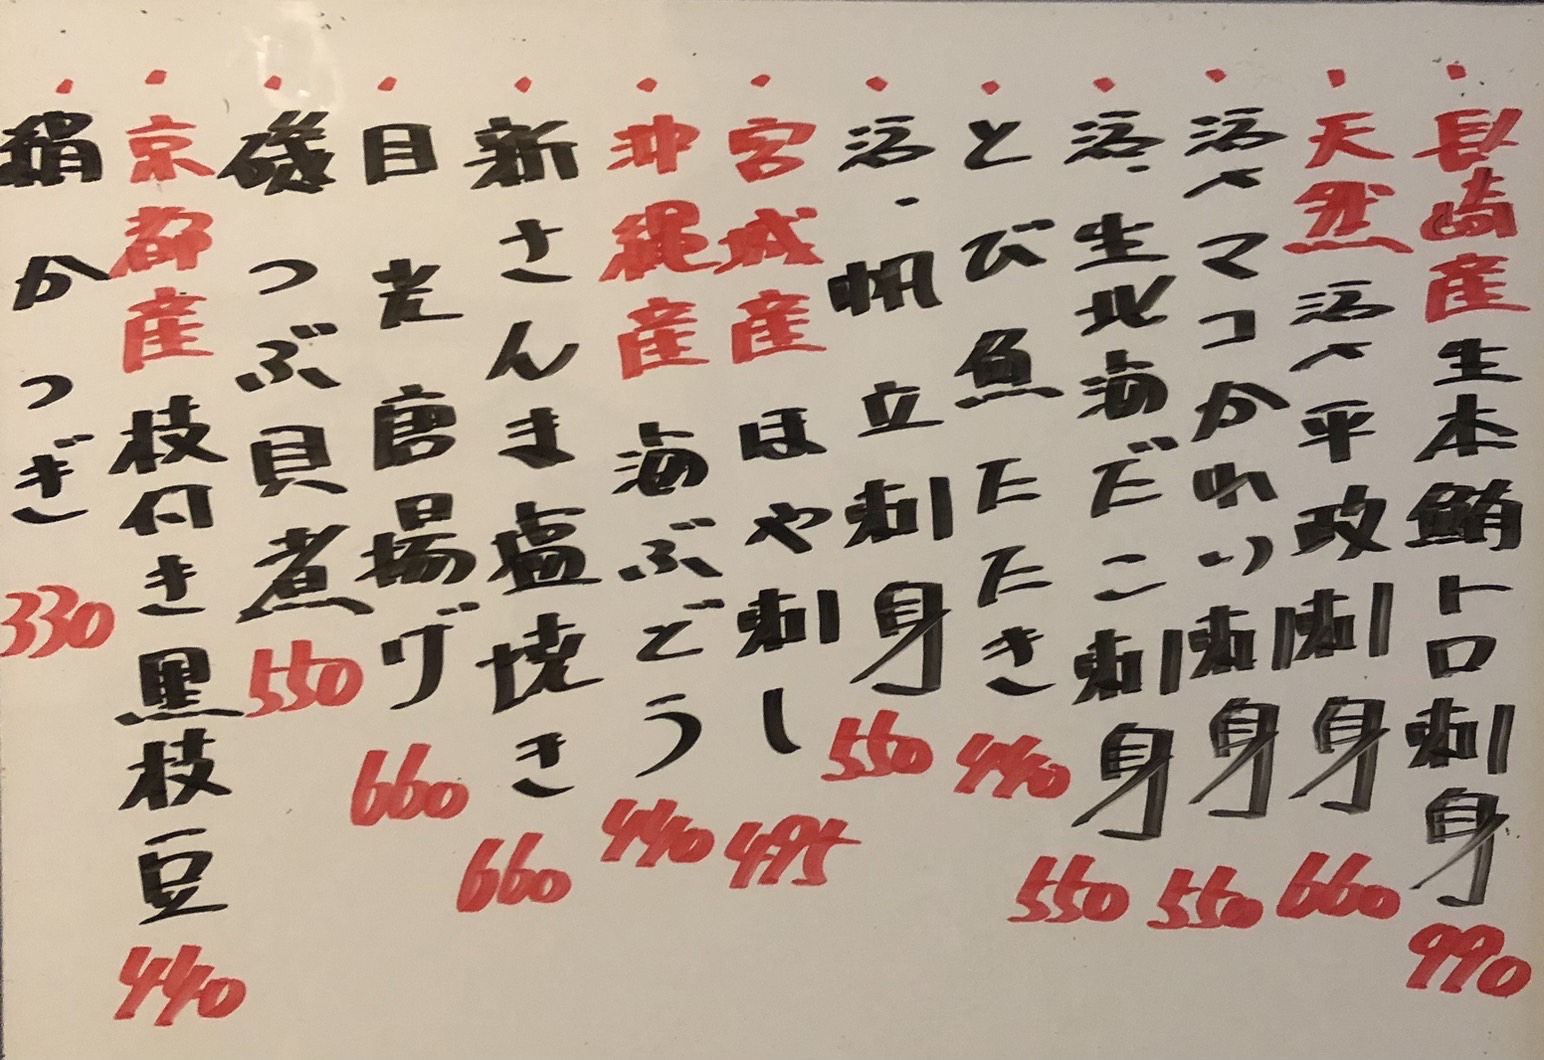 ・長崎産生本鮪トロ刺身 990
・天然活〆平政刺身 660
・活〆マコかれい刺身 550
・活・生北海だこ刺身 550
・とび魚たたき 440
・活・帆立刺身 550
・宮城産ほや刺し 495
・沖縄産海ぶどう 440
・新さんま塩焼き 660
・目光唐揚げ 660
・磯つぶ貝煮 550
・京都産枝付き黒枝豆 440
絹かつぎ 330